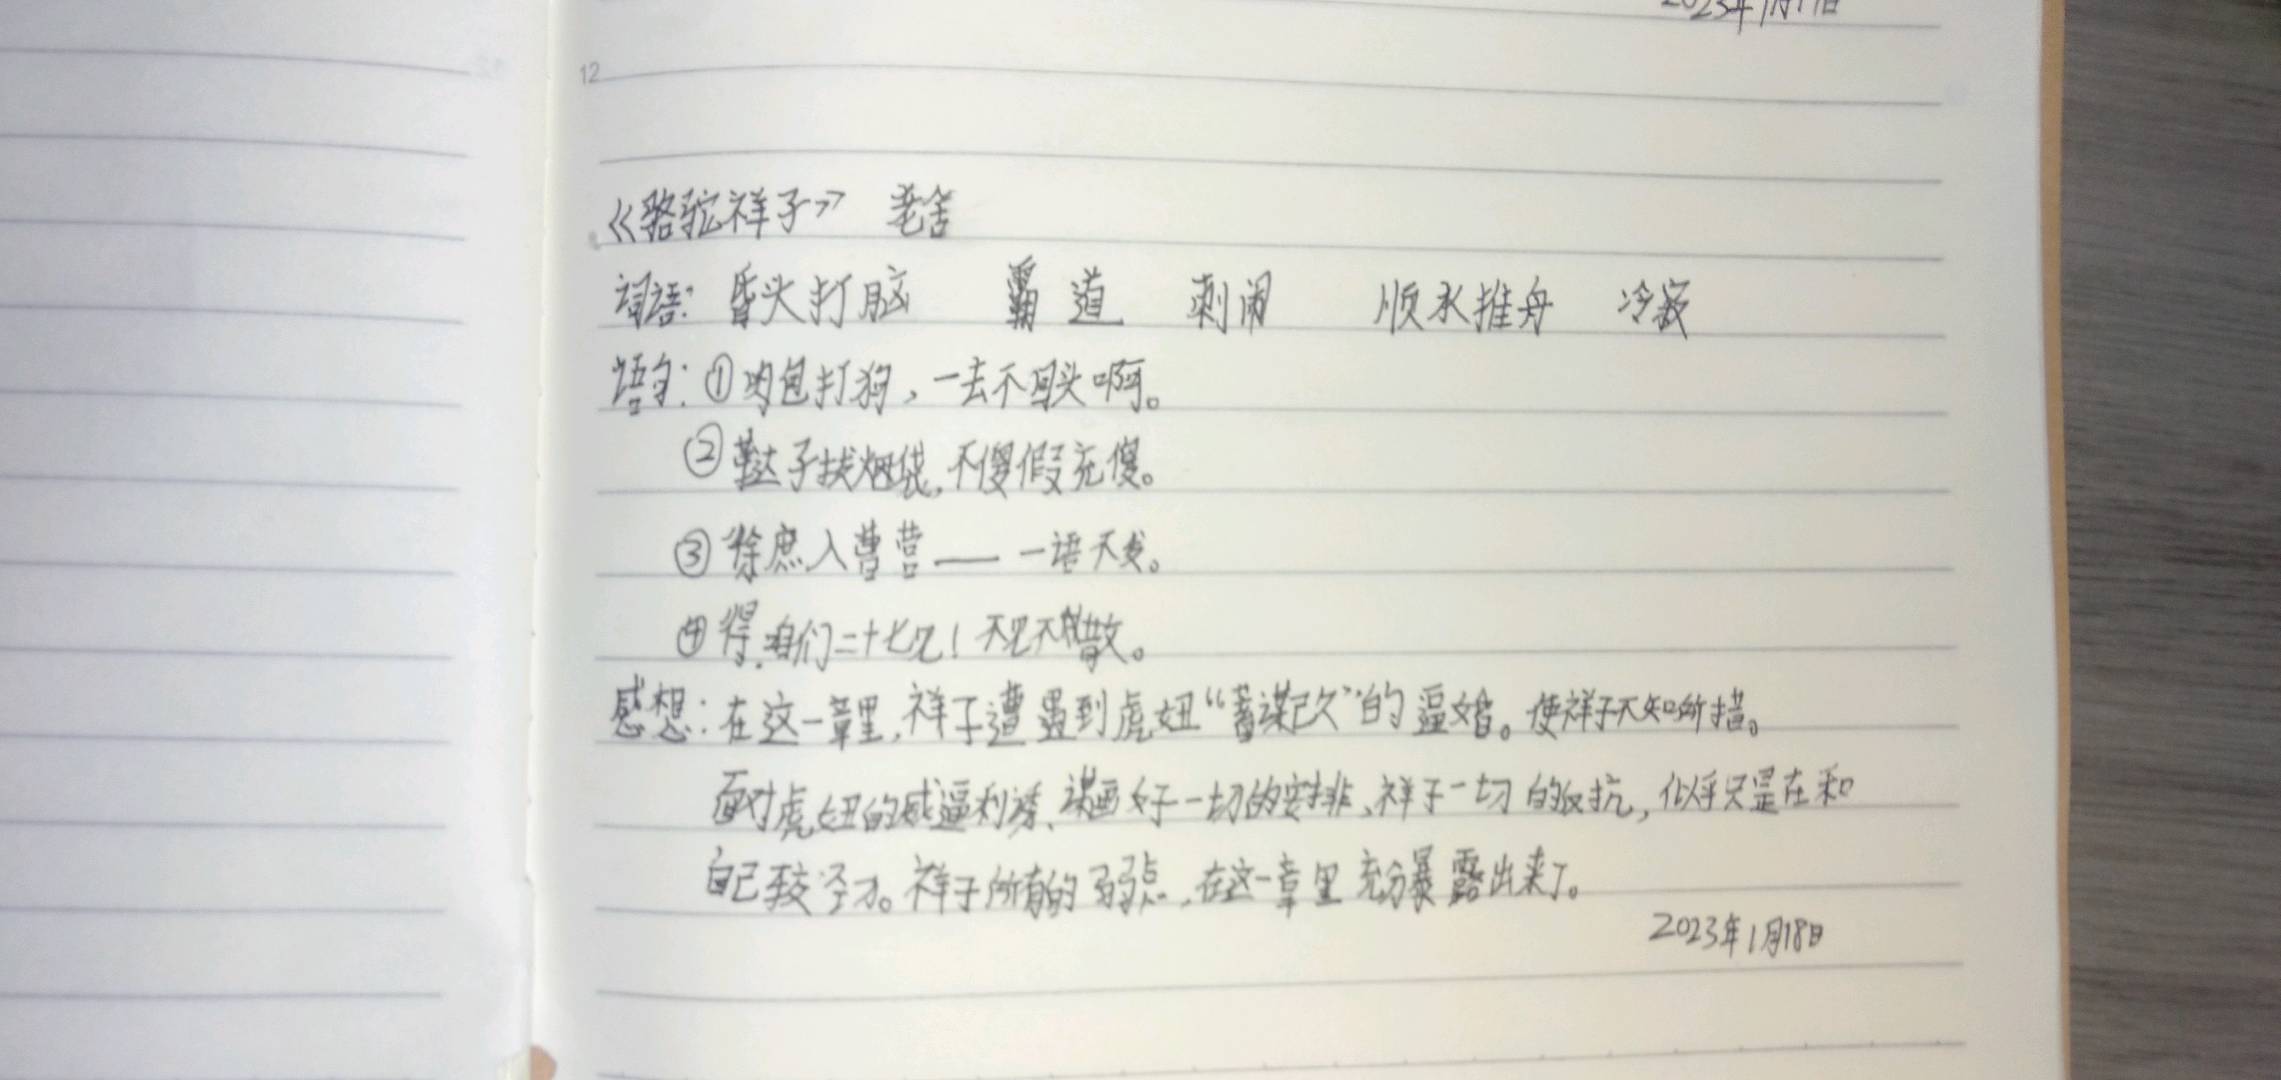 2023年1月17日
12
《骆驼祥子》 老舍
词语：昏头打脑 霸道 刺闹 顺水推舟 冷寂
语句：①肉包打狗，一去不回头啊。
②鞑子拔烟袋，不傻假充傻。
③徐庶入曹营——一语不发。
④得，咱们二十七见！不见不散。
感想：在这一章里，祥子遭遇到虎妞“蓄谋已久”的逼婚。使祥子不知所措。
面对虎妞的威逼利诱、谋画好一切的安排、祥子一切的反抗，似乎只是在和
自己较劲。祥子所有的弱点，在这一章里充分暴露出来了。
2023年1月18日